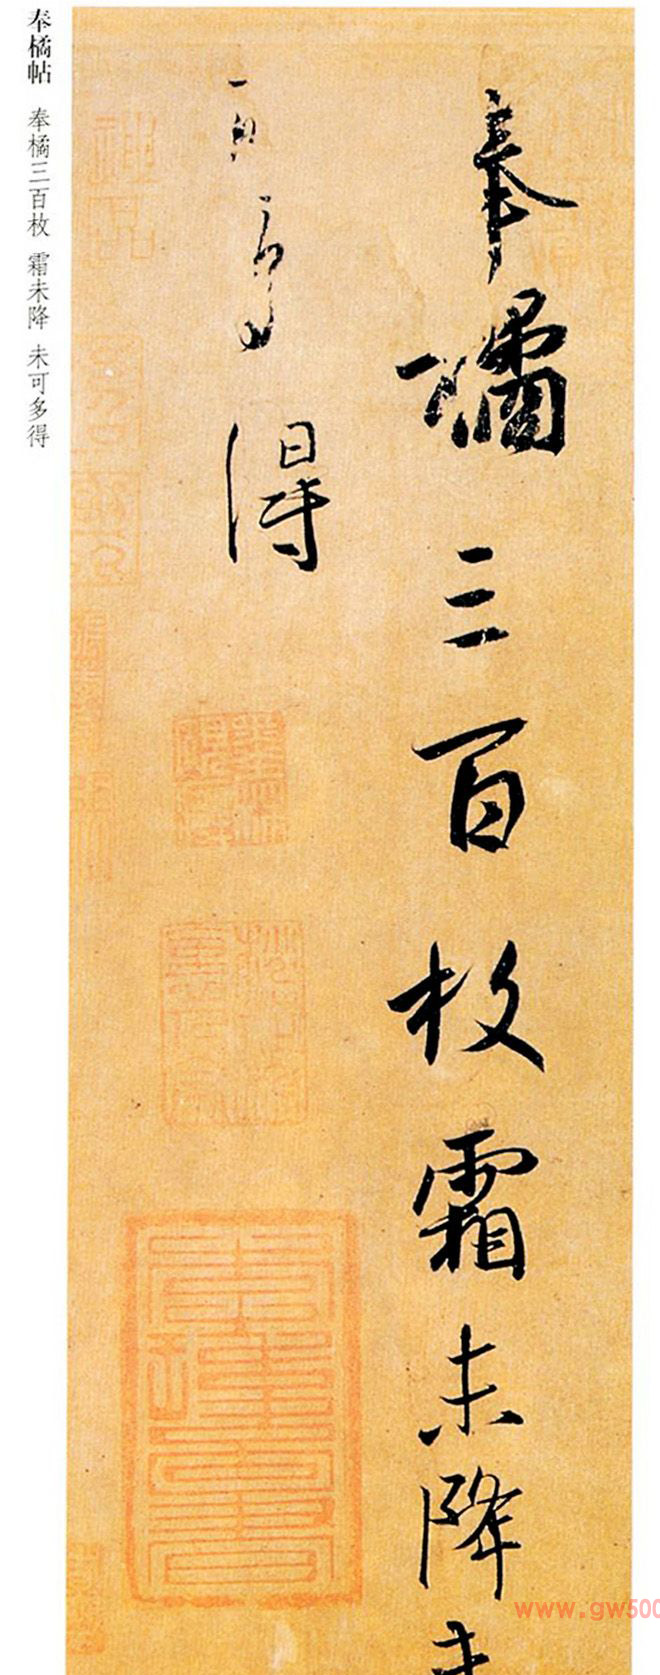 奉橘三百枚霜未降未
可多得
奉橘帖 奉橘三百枚 霜未降 未可多得
www.gw500